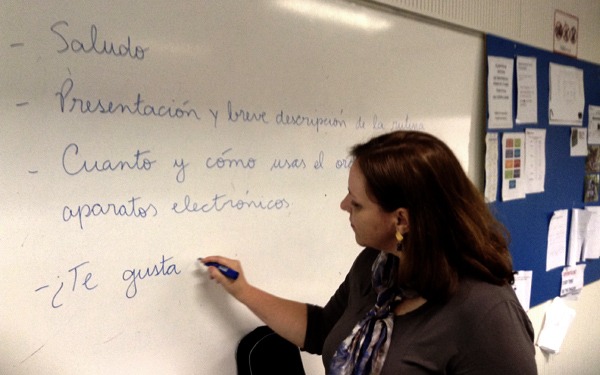 - Saludo
- Presentación y breve descripción de la rutina
- Cuanto y cómo usas el
aparatos electrónicos
- ¿Te gusta